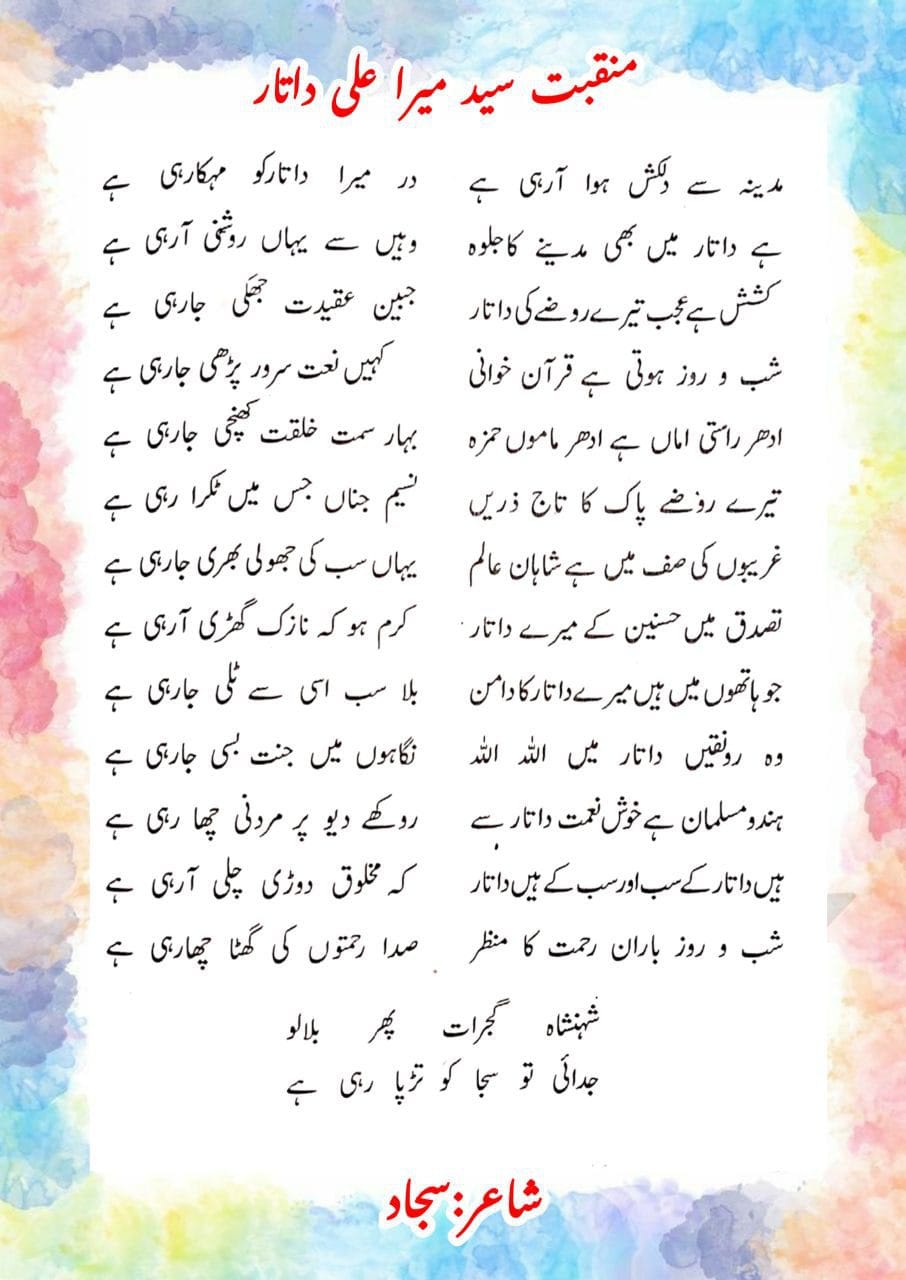 منقبت سید میرا علی داتار
مدینہ سے دلکش ہوا آرہی ہے در میرا داتارکو مہکارہی ہے
ہے داتار میں بھی مدینے کاجلوہ وہیں سے یہاں روشنی آرہی ہے
کشش ہے عجب تیرے روضے کی داتار جبین عقیدت جھکی جارہی ہے
شب و روز ہوتی ہے قرآن خوانی کہیں نعت سرور پڑھی جارہی ہے
ادھر راستی اماں ہے ادھر ماموں حمزہ بہار سمت خلقت کھنچی جارہی ہے
تیرے روضے پاک کا تاج ذریں نسیم جناں جس میں ٹکرا رہی ہے
غریبوں کی صف میں ہے شاہان عالم یہاں سب کی جھولی بھری جارہی ہے
تصدق میں حسنین کے میرے داتار کرم ہو کہ نازک گھڑی آرہی ہے
جو ہاتھوں میں ہیں میرے داتار کا دامن بلا سب اسی سے ٹلی جارہی ہے
وہ رونقیں داتار میں اللہ اللہ نگاہوں میں جنت بسی جارہی ہے
ہندو مسلمان ہے خوش نعمت داتار سے روکھے دیو پر مردنی چھا رہی ہے
ہیں داتار کے سب اور سب کے ہیں داتار کہ مخلوق دوڑی چلی آرہی ہے
شب و روز باران رحمت کا منظر صدا رحمتوں کی گھٹا چھارہی ہے
شہنشاہ گجرات پھر بلالو
جدائی تو سجا کو تڑپا رہی ہے
شاعر:سجاد